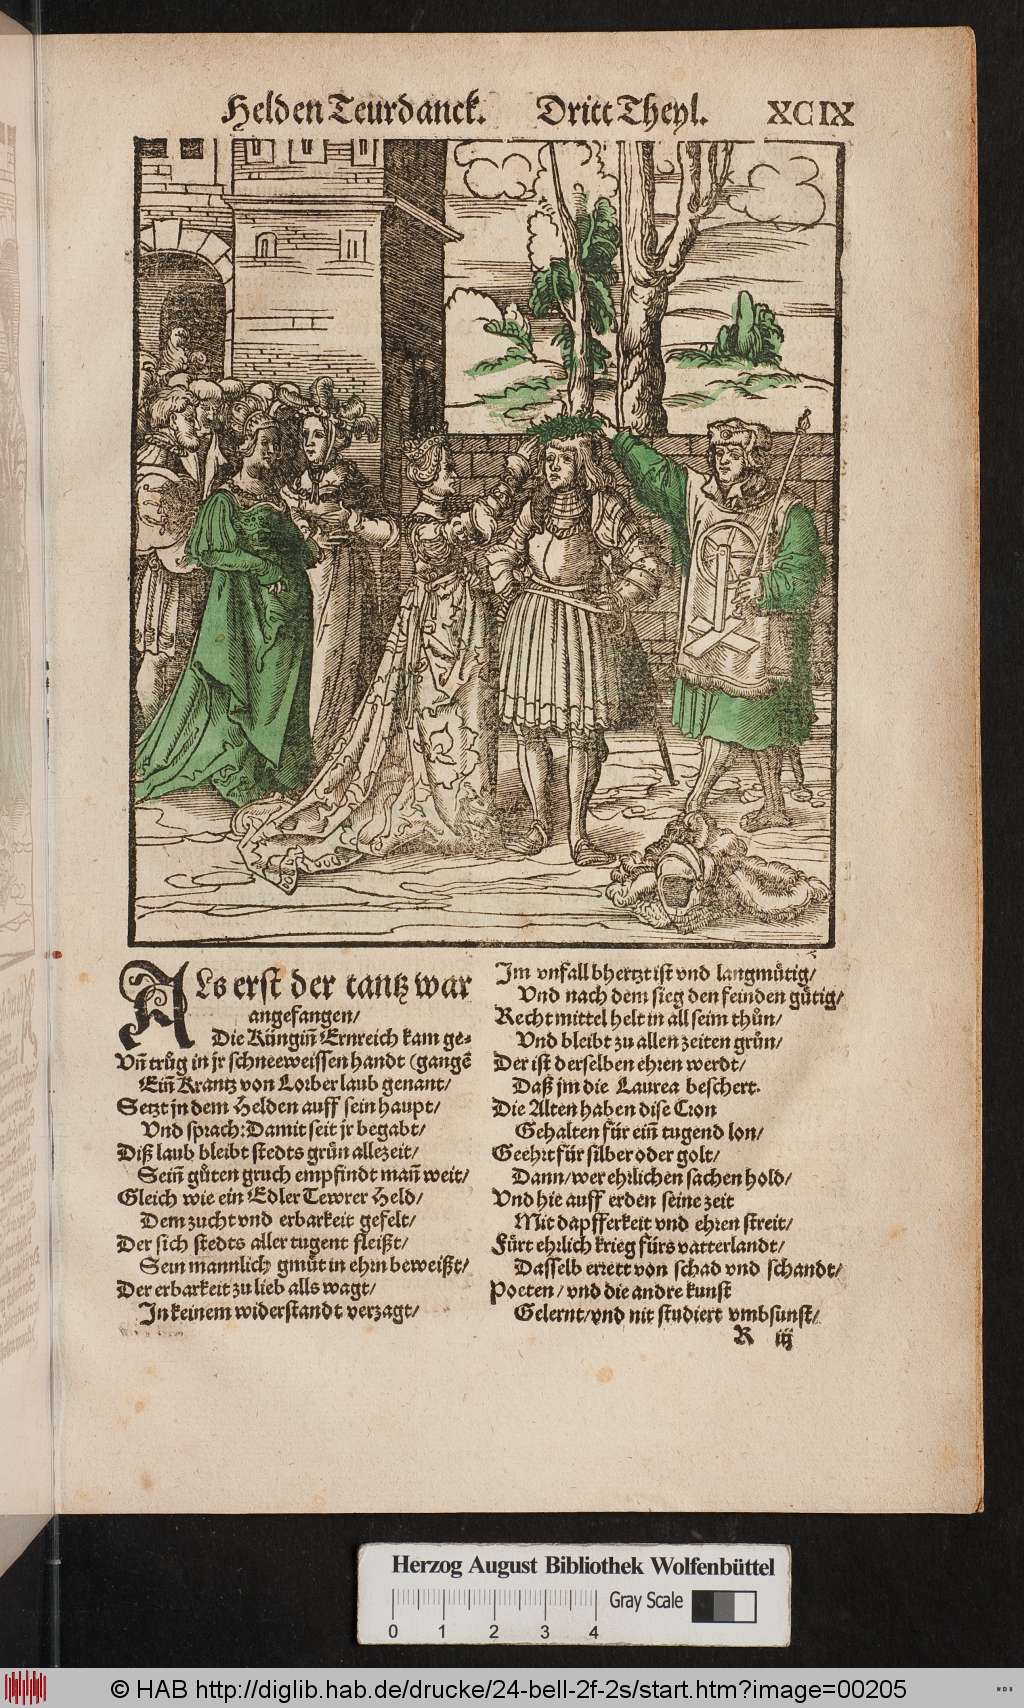 Helden Teurdanck. Dritt Theyl. XCIX
ALs erst der tantz war
angefangen/
Die Küngiñ Ernreich kam ge⸗
Vñ trůg in jr schneeweissen handt (gangẽ
Eiñ Krantz von Lorberlaub genant/
Setzt jn dem Helden auff sein haupt/
Vnd sprach: Damit seit jr begabt/
Diß laub bleibt stedts grün allezeit/
Seiñ gůten gruch empfindt mañ weit/
Gleich wie ein Edler Tewrer Held/
Dem zucht vnd erbarkeit gefelt/
Der sich stedts aller tugent fleißt/
Sein mannlich gmüt in ehrn beweißt/
Der erbarkeit zu lieb alls wagt/
In keinem widerstandt verzagt/
Im vnfall bhertzt ist vnd langmůtig/
Vnd nach dem sieg den feinden gůtig/
Recht mittel helt in all seim thůn/
Vnd bleibt zu allen zeiten grün/
Der ist derselben ehren werdt/
Daß jm die Laurea beschert.
Die Alten haben dise Cron
Gehalten für eiñ tugend lon/
Geehrt für silber oder golt/
Dann/wer ehrlichen sachen hold/
Vnd hie auff erden seine zeit
Mit dapfferkeit vnd ehren streit/
Fürt ehrlich krieg fürs vatterlandt/
Dasselb errett von schad vnd schandt/
Poeten/vnd die andre kunst
Gelernt/vnd nit studiert vmbsunst/
R iij
Herzog August Bibliothek Wolfenbüttel
Gray Scale
0 1 2 3 4
© HAB http://diglib.hab.de/drucke/24-bell-2f-2s/start.htm?image=00205